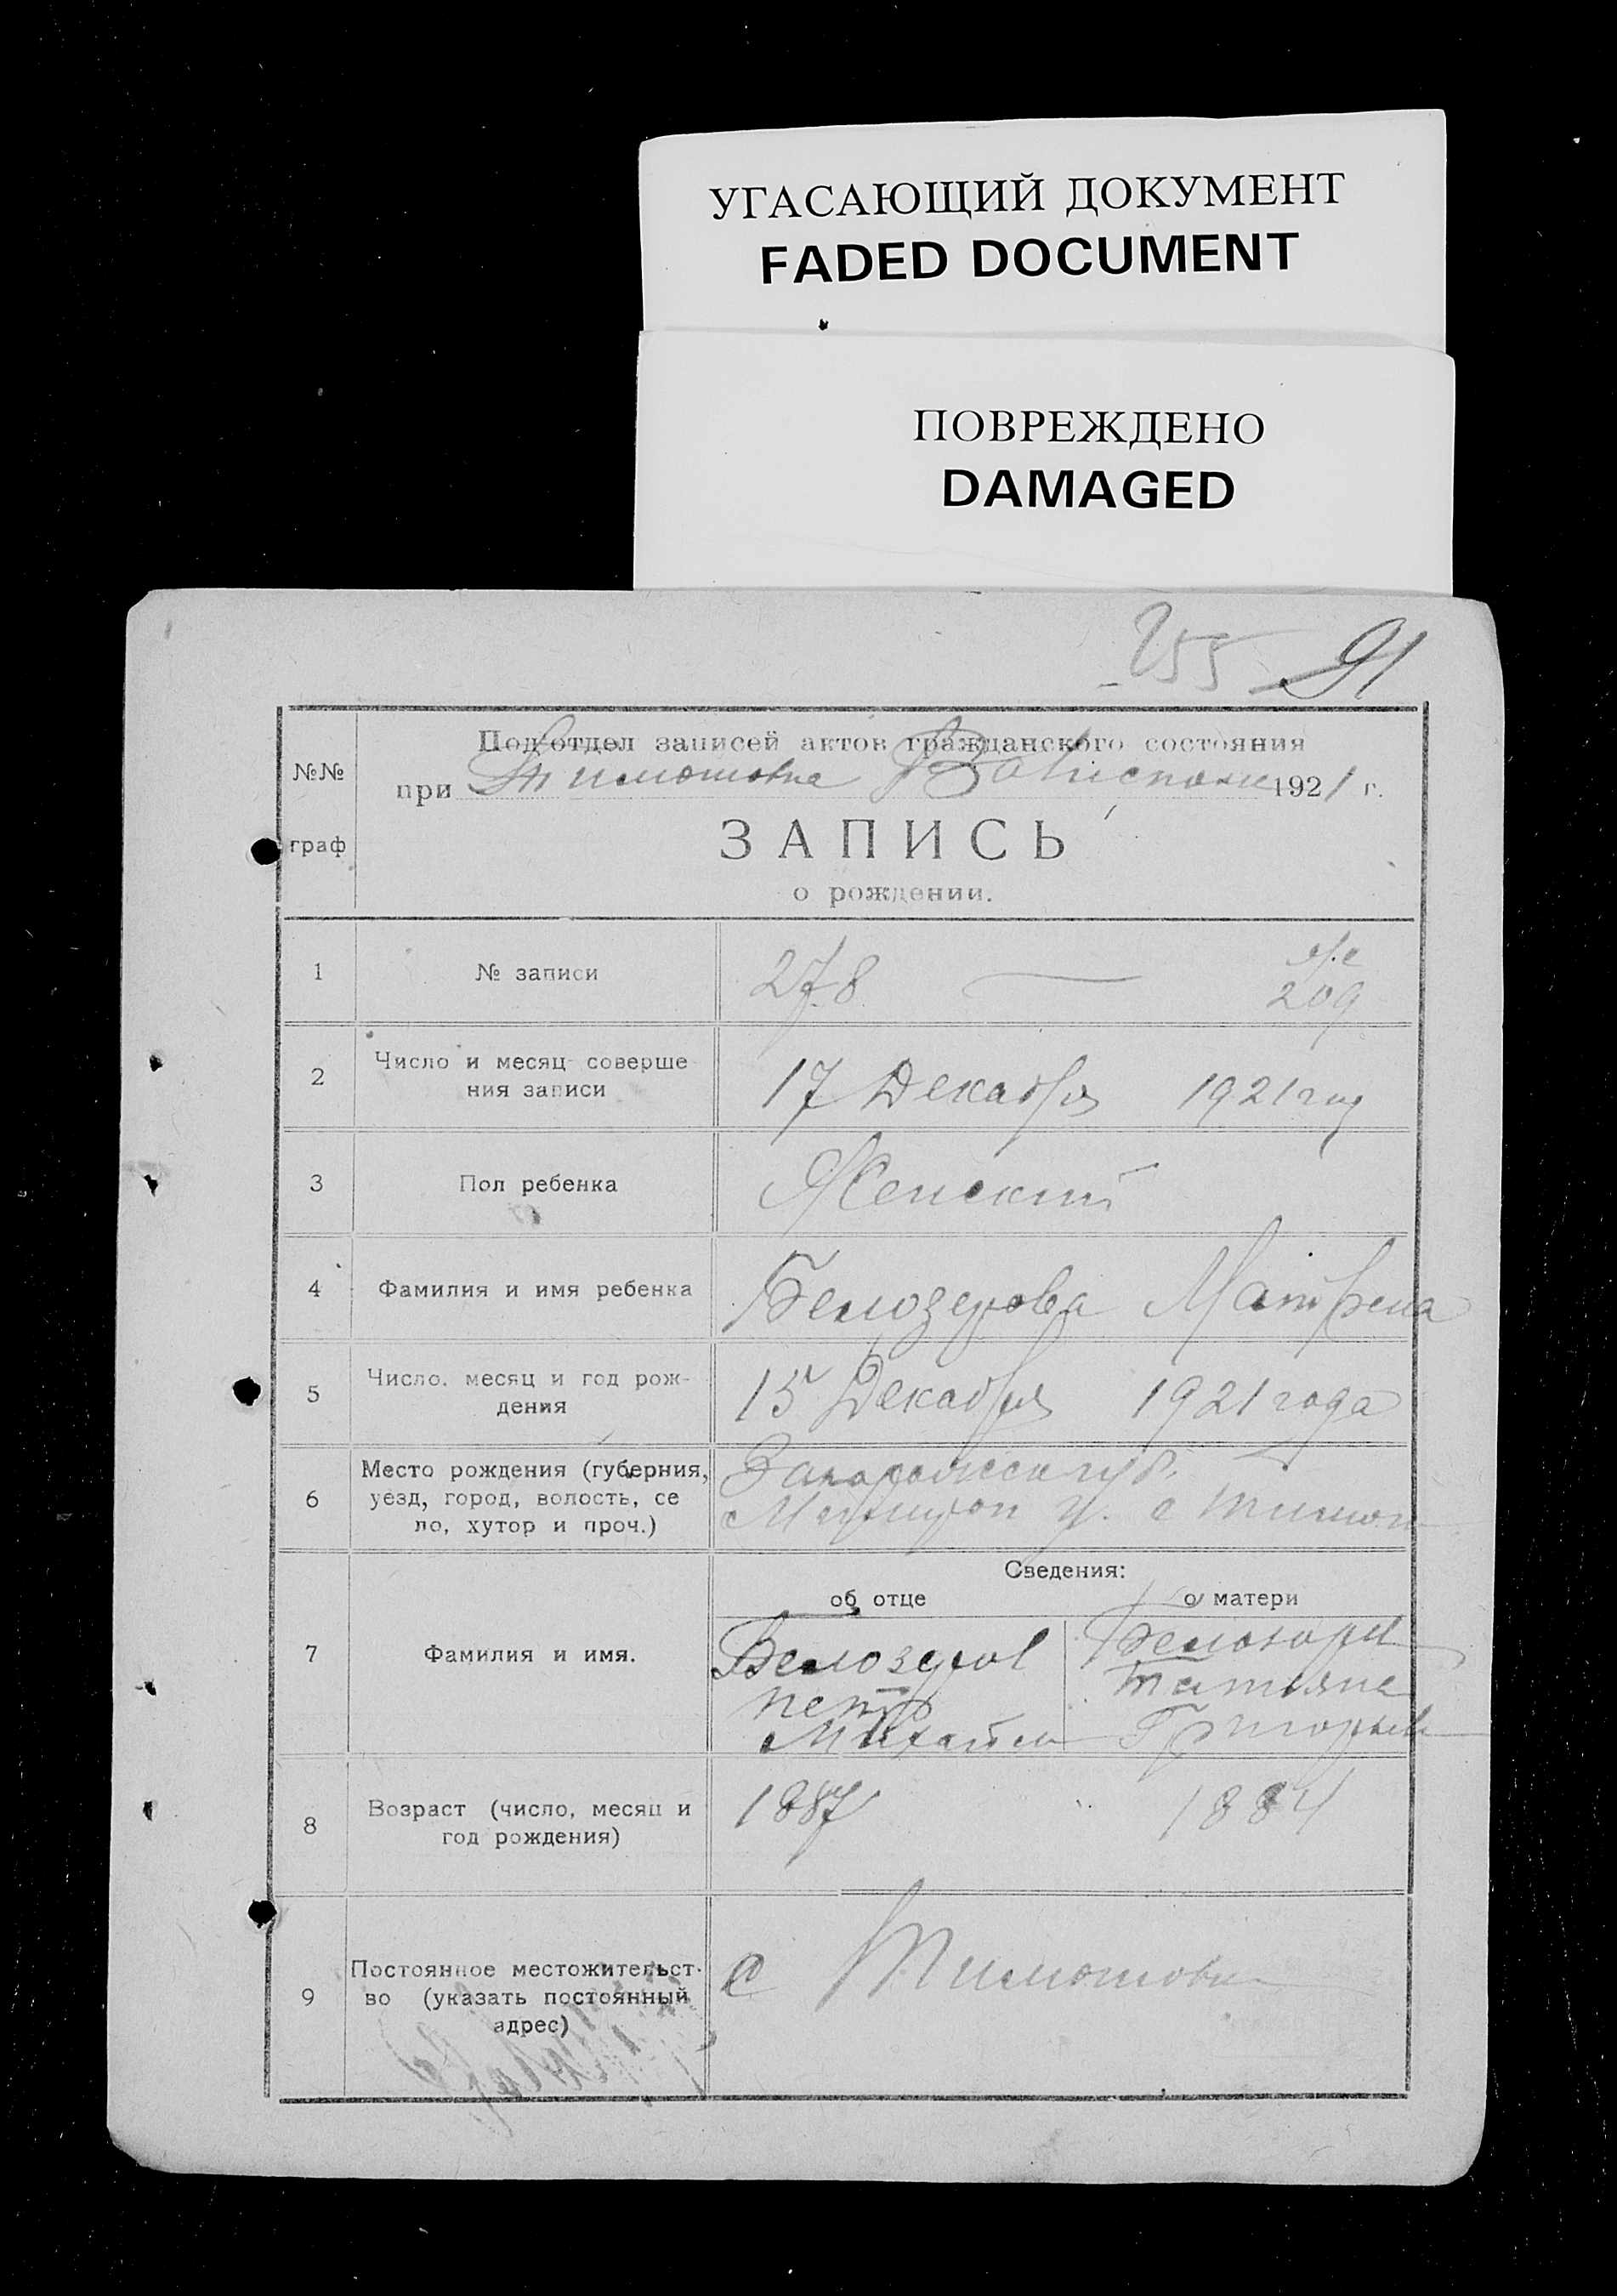 УГАСАЮЩИЙ ДОКУМЕНТ
FADED DOCUMENT
ПОВРЕЖДЕНО
DAMAGED
255 91
№№
граф
Подотдел записей актов гражданского состояния
при Тимошовка 1921 г.
ЗАПИСЬ
о рождении.
1 № записи 278 209
2 Число и месяц соверше
ния записи 17 Декабря 1921 год
3 Пол ребенка Женский
4 Фамилия и имя ребенка Белозерова Матрена
5 Число, месяц и год рож-
дения 15 Декабря 1921 года
6 Место рождения (губерния,
уезд, город, волость, се
ло, хутор и проч.)
Запорожск губ.
у. с Тимош
Сведения:
об отце о матери
7 Фамилия и имя.
Белозеров
Петр
Михайл
Татьяна
Григорьев
8 Возраст (число, месяц и
год рождения) 1887 1884
9 Постоянное местожительст-
во (указать постоянный
адрес)
с Тимошовка